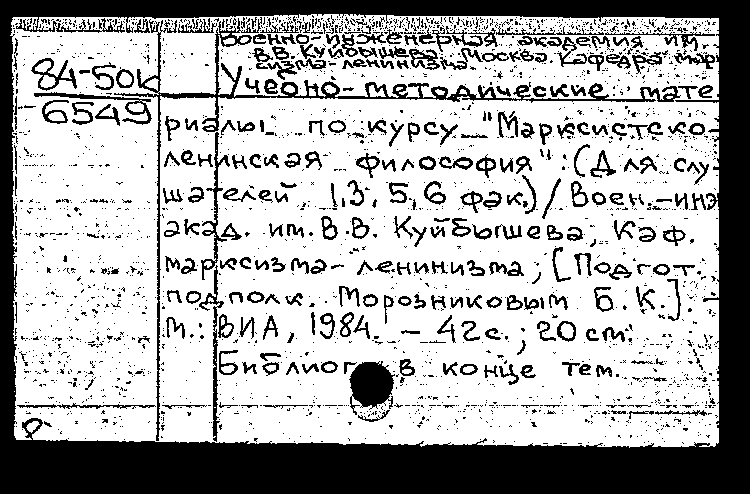 Военно-инженерная академия им.
В.В. Куйбышева. Москва. Кафедра марк
сизма-ленинизма.
84-50к
6549
Учебно-методические мате
риалы по курсу "Марксистско-
ленинская философия": (Для слу-
шателей 1,3,5,6 фак.) / Воен.-инж
акад. им. В.В. Куйбышева, Каф.
марксизма-ленинизма; [Подгот.
подполк. Морозниковым Б.К.]. -
М.: ВИА, 1984. - 42 с.; 20 см.
Библиогр в конце тем.
Р